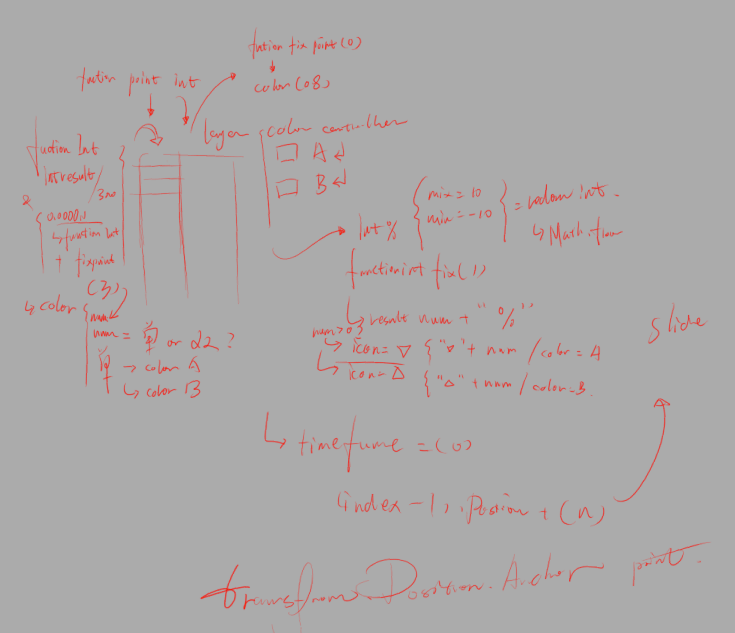 fuction fix point(0)
color(08)
fuction point int
layer
color controlher
A
B
fuction Int
Int result
3no
0.00001
function int
+ fixpoint
(3)
color
num
num = 单 or 22 ?
单 → color A
↳ color B
Int %
mix = 10
min = -10
= redom int.
↳ Math.
function int fix(1)
↳ result num + "%"
num>0
icon = ▽ { "▽" + num / color = A
icon = △ { "△" + num / color = B
slide
↳ timefume = (0)
(index -1). Postion + (n)
transform.Position. Anchor point.